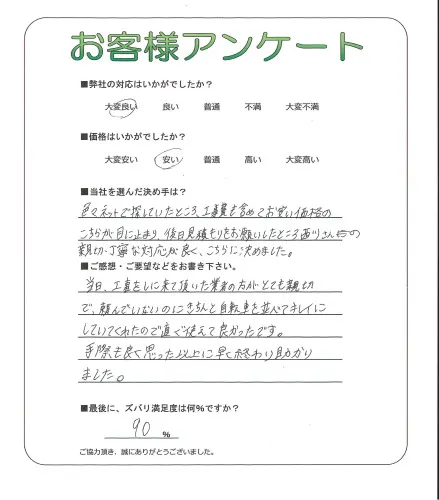 お客様アンケート
■弊社の対応はいかがでしたか？
大変良い 良い 普通 不満 大変不満
■価格はいかがでしたか？
大変安い 安い 普通 高い 大変高い
■当社を選んだ決め手は？
色々ネットで探していたところ、工事費も含めてお安い価格の
こちらが目に止まり、後日見積もりをお願いしたところ西川さん の
親切・丁寧な対応が良く、こちらに決めました。
■ご感想・ご要望などをお書き下さい。
当日、工事をしに来て頂いた業者の方がとても親切
で、頼んでいないのにきちんと自転車を並べてキレイに
していてくれたので直ぐ使えて良かったです。
手際も良く思った以上に早く終わり助かり
ました。
■最後に、ズバリ満足度は何％ですか？
90 %
ご協力頂き、誠にありがとうございました。